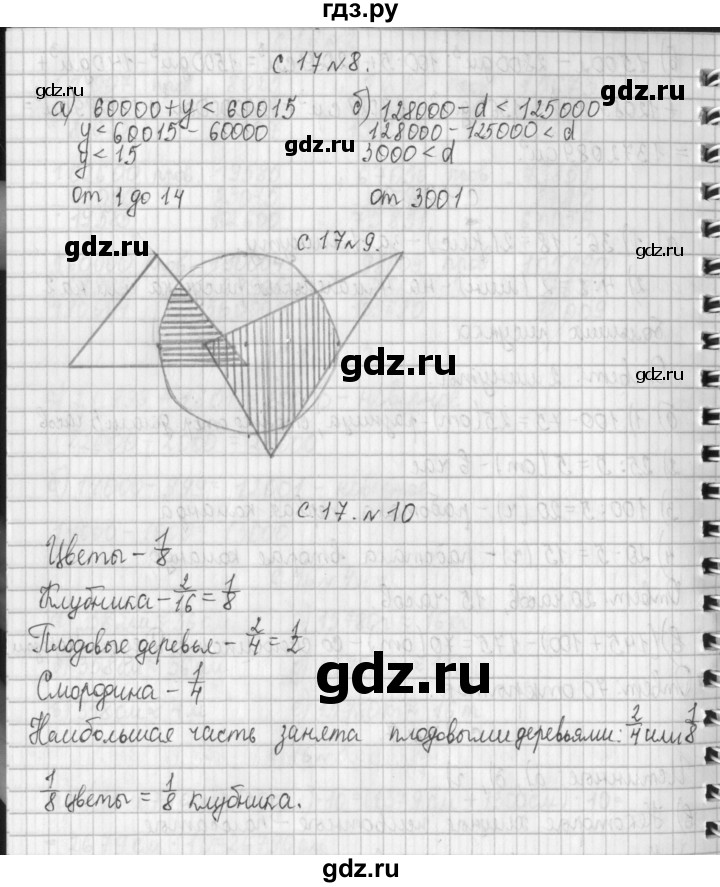 гдз.ру
с. 17 №8.
gdz.ru
gdz.ru
а) 60000 + y < 60015 б) 128000 - d < 125000
y < 60015 - 60000 128000 - 125000 < d
gdz.ru
y < 15 3000 < d
От 1 до 14 от 3001
с. 17 №9.
gdz.ru
gdz.ru
gdz.ru
gdz.ru
с. 17. №10
Цветы - 1/8
gdz.ru
Клубника - 2/16 = 1/8
Плодовые деревья - 2/4 = 1/2
gdz.ru
Смородина - 1/4
Наибольшая часть занята плодовыми деревьями: 2/4 или 1/8
1/8 цветы = 1/8 клубника.
gdz.ru
gdz.ru
gdz.ru